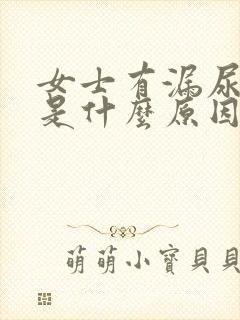 女士有漏尿
是什麼原因
萌萌小寶貝貝